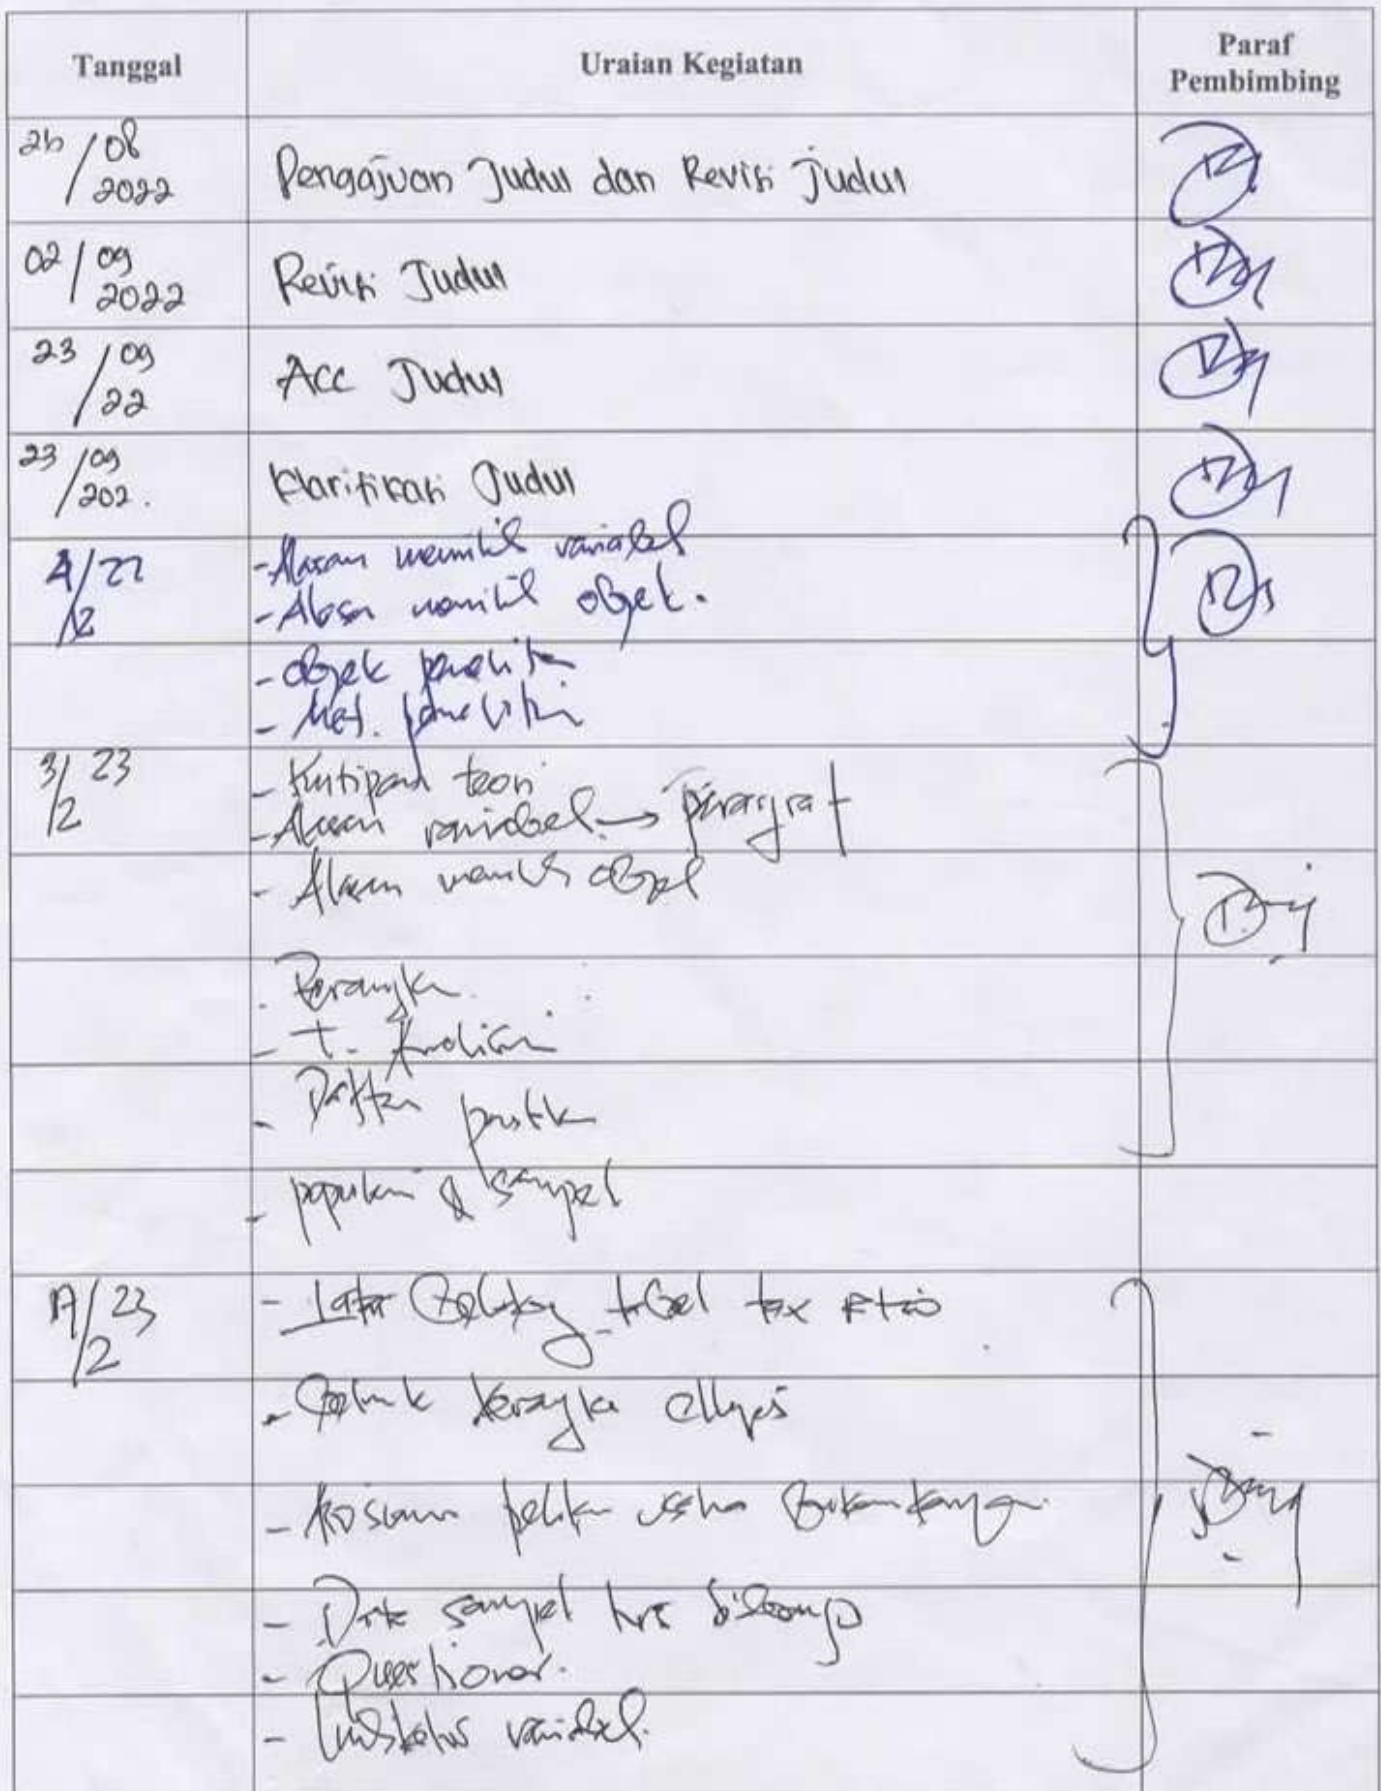 Tanggal
Uraian Kegiatan
Paraf
Pembimbing
26/08
2022
Pengajuan Judul dan Revisi Judul
02/09
2022
Revisi Judul
23/09
/22
Acc Judul
23/09
/202.
Klarifikasi Judul
/22
/12
- Alasan memilih variabel
- Alasan memilih objek.
- objek peneliti
- Met. penelitian
3/23
/2
- Kutipan teori
- Alasan variabel → paragraf
- Alasan memilih objek
- Kerangka
- T. Analisis
- Daftar pustaka
- populasi & sampel
17/23
/2
- Latar Belakang tabel tax ratio
- Bentuk kerangka
- pelaku usaha Bukan
- Data sampel hrs
- Questioner.
- Indikator variabel.